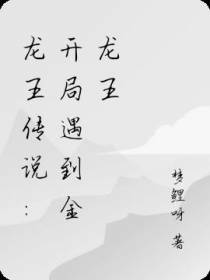 龙王传说：
开局遇到金
龙王
梦鲤呀 著